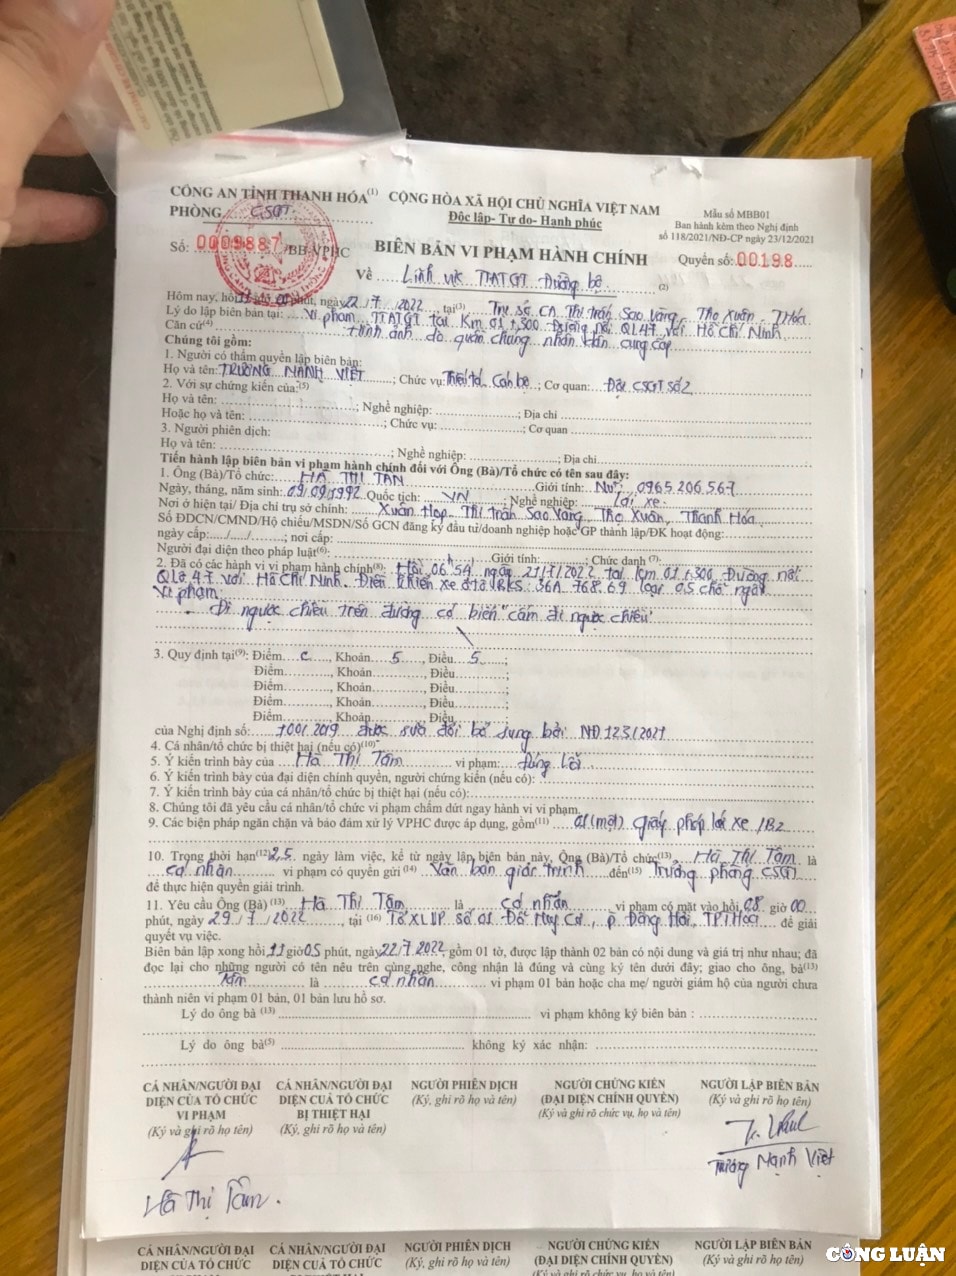 CÔNG AN TỈNH THANH HÓA(1) CỘNG HÒA XÃ HỘI CHỦ NGHĨA VIỆT NAM
PHÒNG CSGT Độc lập- Tự do- Hạnh phúc
Mẫu số MBB01
Ban hành kèm theo Nghị định
số 118/2021/NĐ-CP ngày 23/12/2021
Số: 0009887 /BB-VPHC BIÊN BẢN VI PHẠM HÀNH CHÍNH Quyển số: 00198
Về Lĩnh vực TTATGT Đường bộ (2)
Hôm nay, hồi 11 giờ 00 phút, ngày 22/7/2022, tại(3) Trụ sở CA Thị trấn Sao Vàng, Thọ Xuân, T.Hóa
Lý do lập biên bản tại: Vi phạm TTATGT tại Km 01+500 Đường nối QL47 với Hồ Chí Minh
Căn cứ(4) Hình ảnh do quần chúng nhân dân cung cấp
Chúng tôi gồm:
1. Người có thẩm quyền lập biên bản:
Họ và tên: TRƯƠNG MẠNH VIỆT; Chức vụ: Thiếu tá Cán bộ; Cơ quan: Đội CSGT số 2
2. Với sự chứng kiến của:(5)
Họ và tên: ; Nghề nghiệp: ; Địa chỉ
Hoặc họ và tên: ; Chức vụ: ; Cơ quan
3. Người phiên dịch:
Họ và tên: ; Nghề nghiệp: ; Địa chỉ
Tiến hành lập biên bản vi phạm hành chính đối với Ông (Bà)/Tổ chức có tên sau đây:
1. Ông (Bà)/Tổ chức: HÀ THỊ TÂN Giới tính: Nữ; 0965.206.567
Ngày, tháng, năm sinh: 09/09/1992 Quốc tịch: VN; Nghề nghiệp: Lái xe
Nơi ở hiện tại/ Địa chỉ trụ sở chính: Xuân Hợp, Thị trấn Sao Vàng, Thọ Xuân, Thanh Hóa
Số ĐDCN/CMND/Hộ chiếu/MSDN/Số GCN đăng ký đầu tư/doanh nghiệp hoặc GP thành lập/ĐK hoạt động:
ngày cấp: / / ; nơi cấp:
Người đại diện theo pháp luật(6): Giới tính: ; Chức danh (7):
2. Đã có các hành vi vi phạm hành chính(8): Hồi 06h54' ngày 21/7/2022 tại Km 01+500 Đường nối
QL 47 với Hồ Chí Minh. Điều khiển xe ô tô BKS: 36A 768.69 loại 05 chỗ ngồi
Vi phạm:
- Đi ngược chiều trên đường có biển "cấm đi ngược chiều"
3. Quy định tại(9): Điểm c, Khoản 5, Điều 5;
Điểm , Khoản , Điều ;
Điểm , Khoản , Điều ;
Điểm , Khoản , Điều ;
Điểm , Khoản , Điều ;
của Nghị định số: 100/2019 được sửa đổi bổ sung bởi NĐ 123/2021
4. Cá nhân/tổ chức bị thiệt hại (nếu có)(10)
5. Ý kiến trình bày của Hà Thị Tâm vi phạm: đúng lỗi
6. Ý kiến trình bày của đại diện chính quyền, người chứng kiến (nếu có):
7. Ý kiến trình bày của cá nhân/tổ chức bị thiệt hại (nếu có):
8. Chúng tôi đã yêu cầu cá nhân/tổ chức vi phạm chấm dứt ngay hành vi vi phạm.
9. Các biện pháp ngăn chặn và bảo đảm xử lý VPHC được áp dụng, gồm(11) 01 (một) giấy phép lái xe /B2
10. Trong thời hạn(12) 2,5 ngày làm việc, kể từ ngày lập biên bản này, Ông (Bà)/Tổ chức(13) Hà Thị Tâm là
cá nhân vi phạm có quyền gửi (14) Văn bản giải trình đến(15) Trưởng phòng CSGT
để thực hiện quyền giải trình.
11. Yêu cầu Ông (Bà) (13) Hà Thị Tâm là cá nhân vi phạm có mặt vào hồi 08 giờ 00
phút, ngày 29/7/2022, tại (16) Tổ XLVP số 01 Đỗ Huy Cư, p. Đông Hải, TP T.Hóa để giải
quyết vụ việc.
Biên bản lập xong hồi 11 giờ 05 phút, ngày 22/7/2022, gồm 01 tờ, được lập thành 02 bản có nội dung và giá trị như nhau; đã
đọc lại cho những người có tên nêu trên cùng nghe, công nhận là đúng và cùng ký tên dưới đây; giao cho ông, bà(13)
Tâm là cá nhân vi phạm 01 bản hoặc cha mẹ/ người giám hộ của người chưa
thành niên vi phạm 01 bản, 01 bản lưu hồ sơ.
Lý do ông bà (13) vi phạm không ký biên bản :
Lý do ông bà(5) không ký xác nhận:
CÁ NHÂN/NGƯỜI ĐẠI DIỆN CỦA TỔ CHỨC VI PHẠM
(Ký và ghi rõ họ tên)
CÁ NHÂN/NGƯỜI ĐẠI DIỆN CỦA TỔ CHỨC BỊ THIỆT HẠI
(Ký, ghi rõ họ tên)
NGƯỜI PHIÊN DỊCH
(Ký, ghi rõ họ tên)
NGƯỜI CHỨNG KIẾN
(ĐẠI DIỆN CHÍNH QUYỀN)
(Ký và ghi rõ chức vụ, họ và tên)
NGƯỜI LẬP BIÊN BẢN
(Ký và ghi rõ họ tên)
Hà Thị Tâm.
Trương Mạnh Việt
CÁ NHÂN/NGƯỜI ĐẠI DIỆN CỦA TỔ CHỨC
CÁ NHÂN/NGƯỜI ĐẠI DIỆN CỦA TỔ CHỨC
NGƯỜI PHIÊN DỊCH
(Ký, ghi rõ họ tên)
NGƯỜI CHỨNG KIẾN
(ĐẠI DIỆN CHÍNH QUYỀN)
NGƯỜI LẬP BIÊN BẢN
(Ký và ghi rõ họ tên)
CÔNG LUẬN